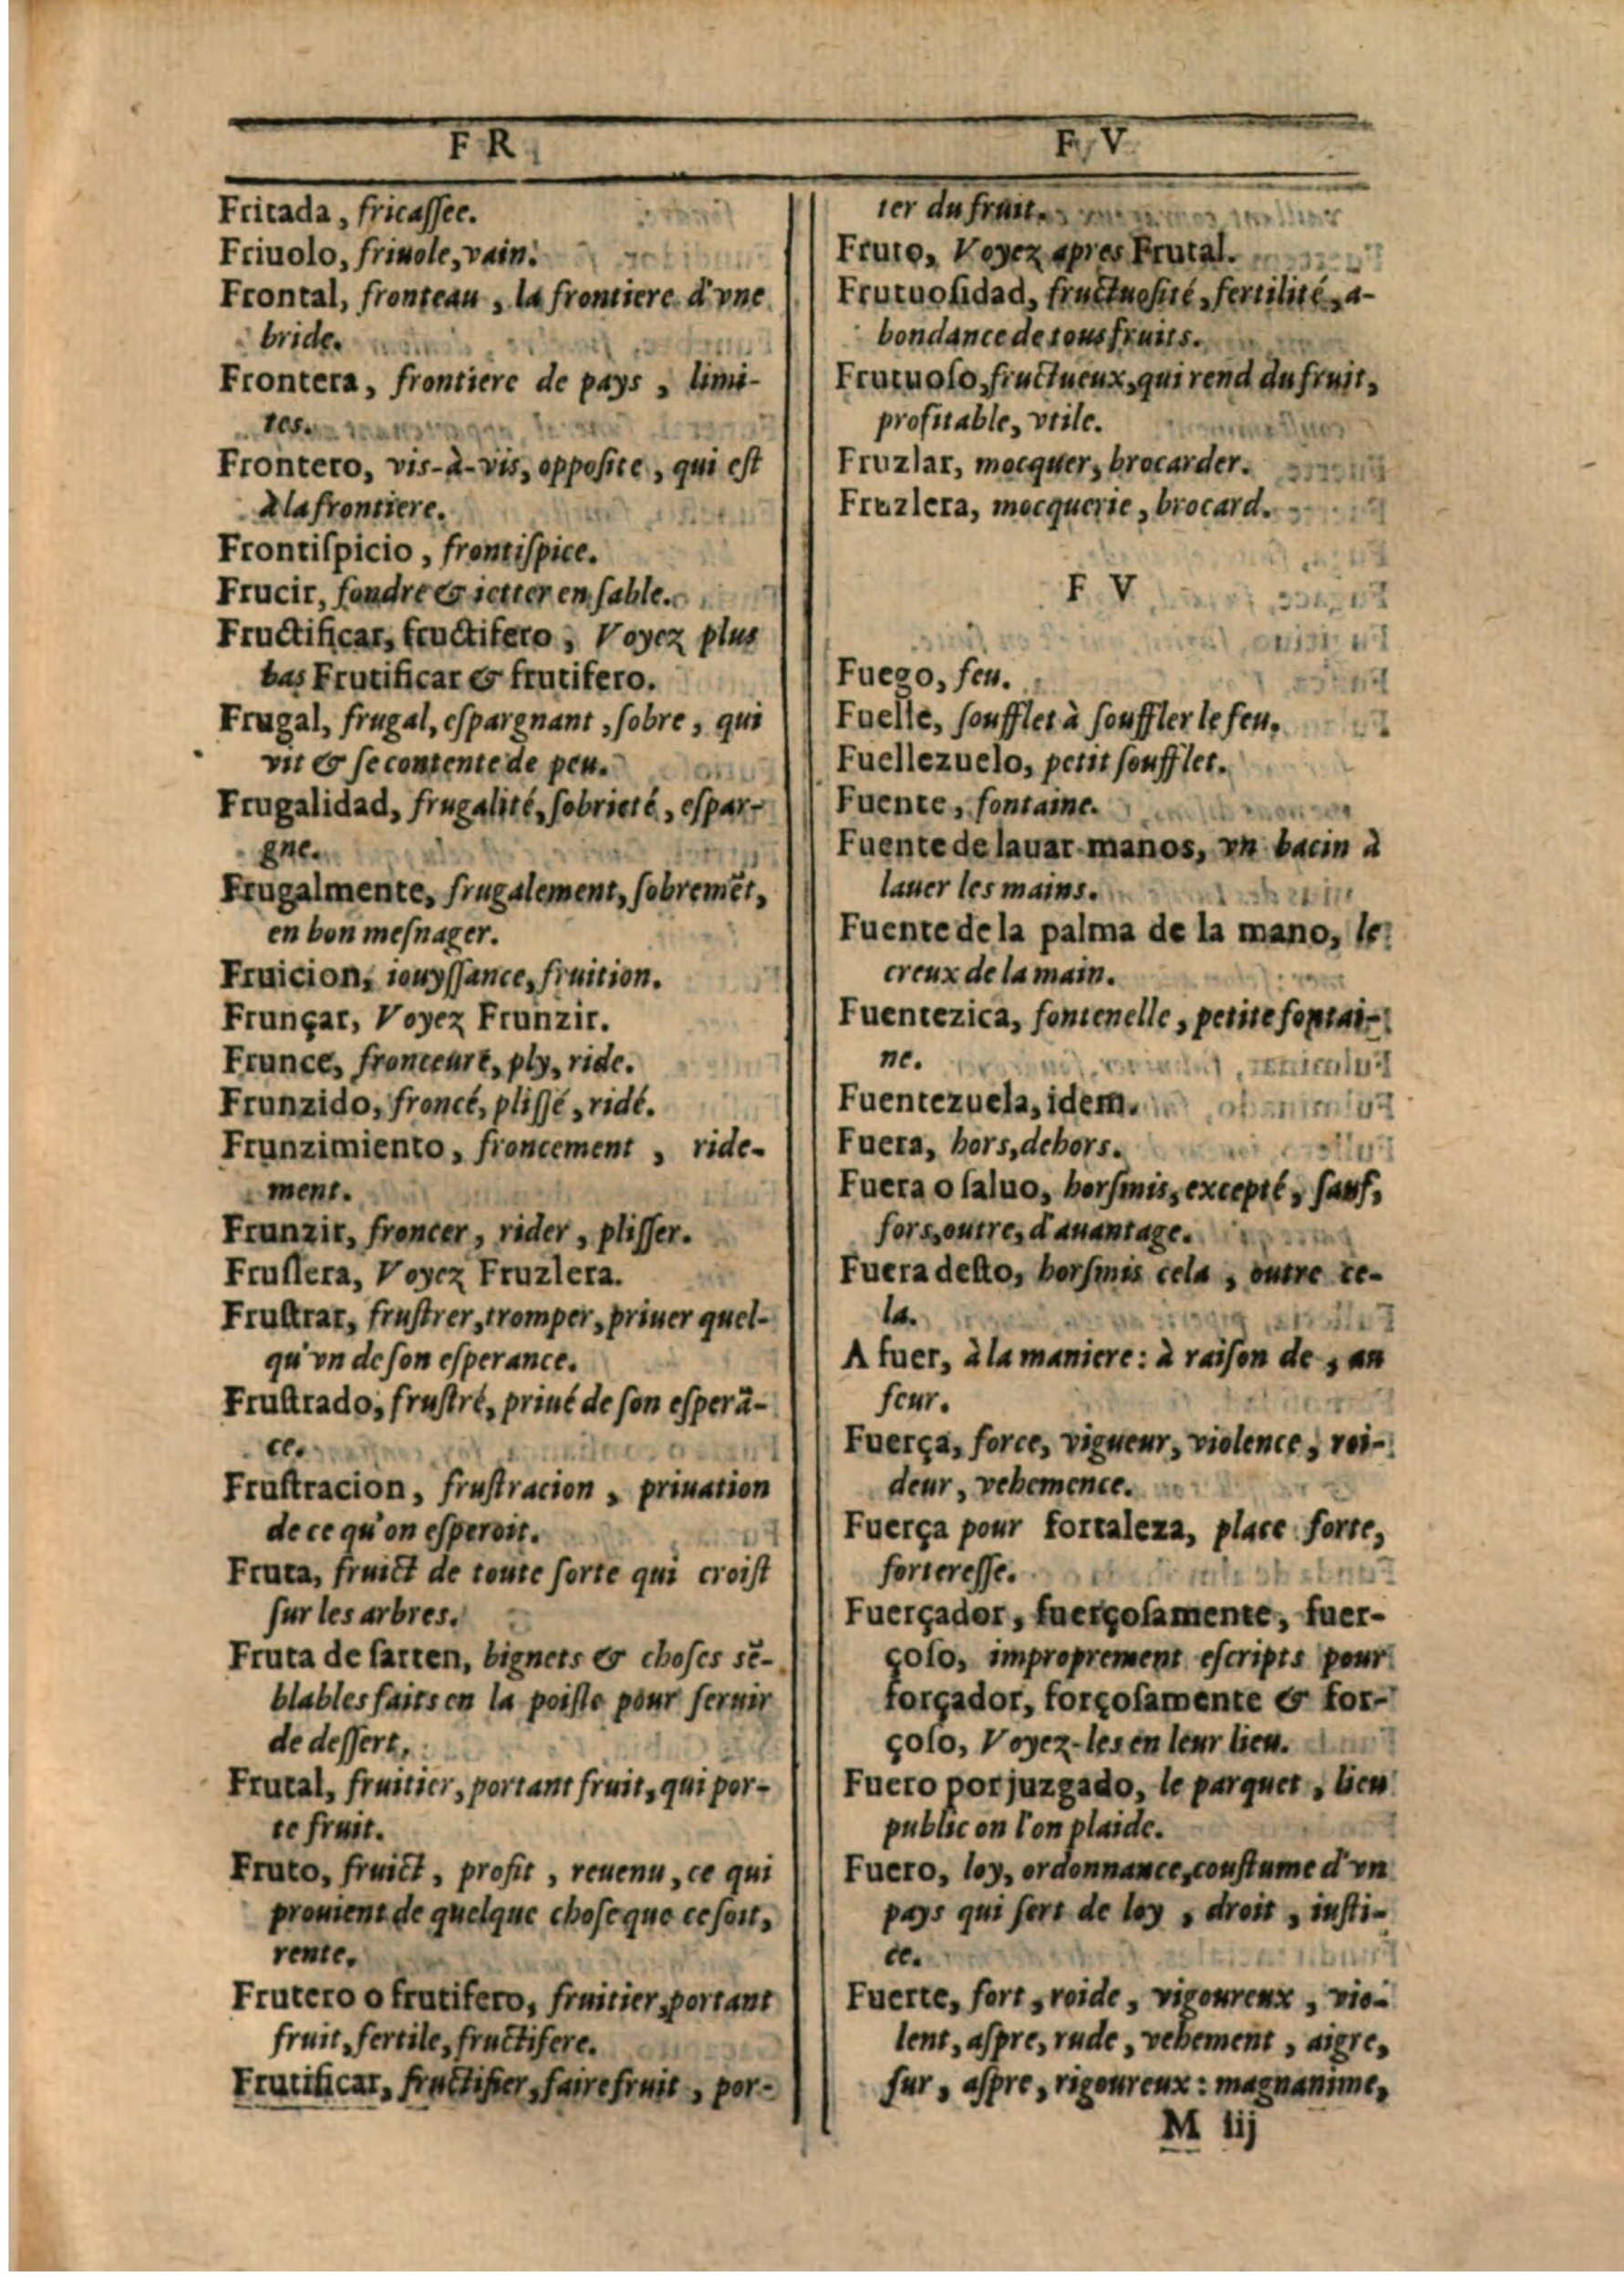 F R
Fritada, fricaſſee.
Friuolo, friuole, vain.
Frontal, fronteau, la frontiere d'vne
bride.
Frontera, frontiere de pays, limi-
tes.
Frontero, vis-à-vis, opposite, qui est
à la frontiere.
Frontiſpicio, frontiſpice.
Frucir, fondre & ietter en ſable.
Fructificar, fructifero, Voyez plus
bas Frutificar & frutifero.
Frugal, frugal, eſpargnant, ſobre, qui
vit & ſe contente de peu.
Frugalidad, frugalité, ſobrieté, eſpar-
gne.
Frugalmente, frugalement, ſobremẽt,
en bon meſnager.
Fruicion, iouyſſance, fruition.
Frunçar, Voyez Frunzir.
Frunce, fronceure, ply, ride.
Frunzido, froncé, pliſſé, ridé.
Frunzimiento, froncement, ride-
ment.
Frunzir, froncer, rider, pliſſer.
Fruſlera, Voyez Fruzlera.
Fruſtrar, fruſtrer, tromper, priuer quel-
qu'vn de ſon eſperance.
Fruſtrado, fruſtré, priué de ſon eſperã-
ce.
Fruſtracion, fruſtracion, priuation
de ce qu'on eſperoit.
Fruta, fruict de toute ſorte qui croiſt
ſur les arbres.
Fruta de ſarten, bignets & choſes sẽ-
blables faits en la poiſle pour ſeruir
de deſſert.
Frutal, fruitier, portant fruit, qui por-
te fruit.
Fruto, fruict, profit, reuenu, ce qui
prouient de quelque choſe que ce ſoit,
rente.
Frutero o frutifero, fruitier, portant
fruit, fertile, fructifere.
Frutificar, fructifier, faire fruit, por-
F V
ter du fruit.
Fruto, Voyez apres Frutal.
Frutuoſidad, fructuoſité, fertilité, a-
bondance de tous fruits.
Frutuoſo, fructueux, qui rend du fruit,
profitable, vtile.
Fruzlar, mocquer, brocarder.
Fruzlera, mocquerie, brocard.
F V
Fuego, feu.
Fuelle, ſoufflet à ſouffler le feu.
Fuellezuelo, petit ſoufflet.
Fuente, fontaine.
Fuente de lauar manos, vn bacin à
lauer les mains.
Fuente de la palma de la mano, le
creux de la main.
Fuentezica, fontenelle, petite fontai-
ne.
Fuentezuela, idem.
Fuera, hors, dehors.
Fuera o ſaluo, horſmis, excepté, ſauf,
fors, outre, d'auantage.
Fuera deſto, horſmis cela, outre ce-
la.
A fuer, à la maniere: à raiſon de, au
feur.
Fuerça, force, vigueur, violence, roi-
deur, vehemence.
Fuerça pour fortaleza, place forte,
fortereſſe.
Fuerçador, fuerçoſamente, fuer-
çoſo, improprement eſcripts pour
forçador, forçoſamente & for-
çoſo, Voyez-les en leur lieu.
Fuero por juzgado, le parquet, lieu
public ou l'on plaide.
Fuero, loy, ordonnance, couſtume d'vn
pays qui ſert de loy, droit, iuſti-
ce.
Fuerte, fort, roide, vigoureux, vio-
lent, aſpre, rude, vehement, aigre,
ſur, aſpre, rigoureux: magnanime,
M iij